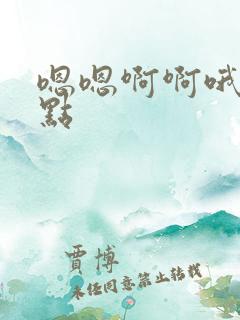 嗯嗯啊啊哦
點
賈博
未经同意禁止转载